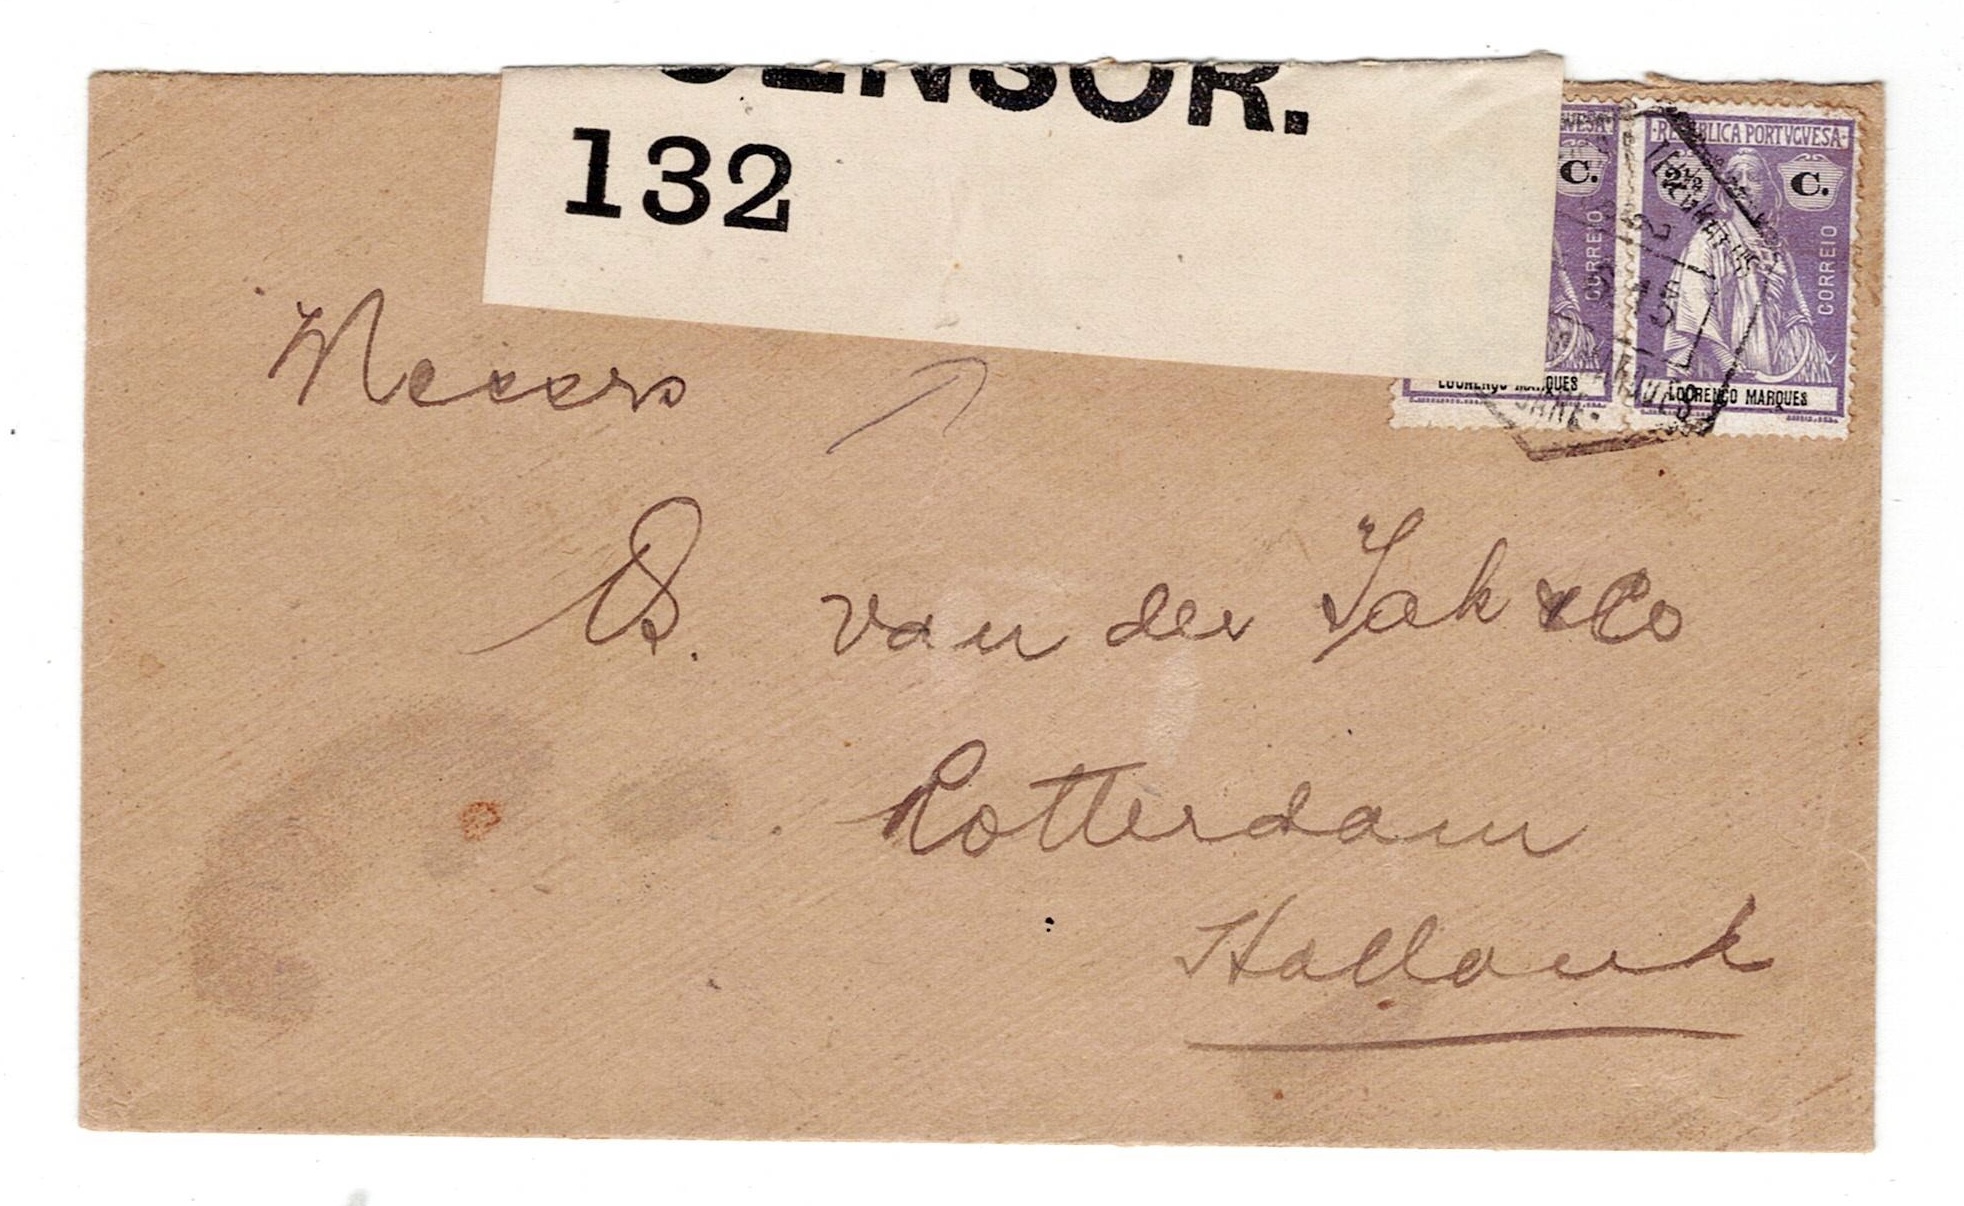 CENSOR.
132
REPUBLICA PORTVGVESA
2½ C.
CORREIO
LOURENÇO MARQUES
VESA
C.
CORREIO
LOURENÇO MARQUES
Messrs
van der Tak & Co
Rotterdam
Holland